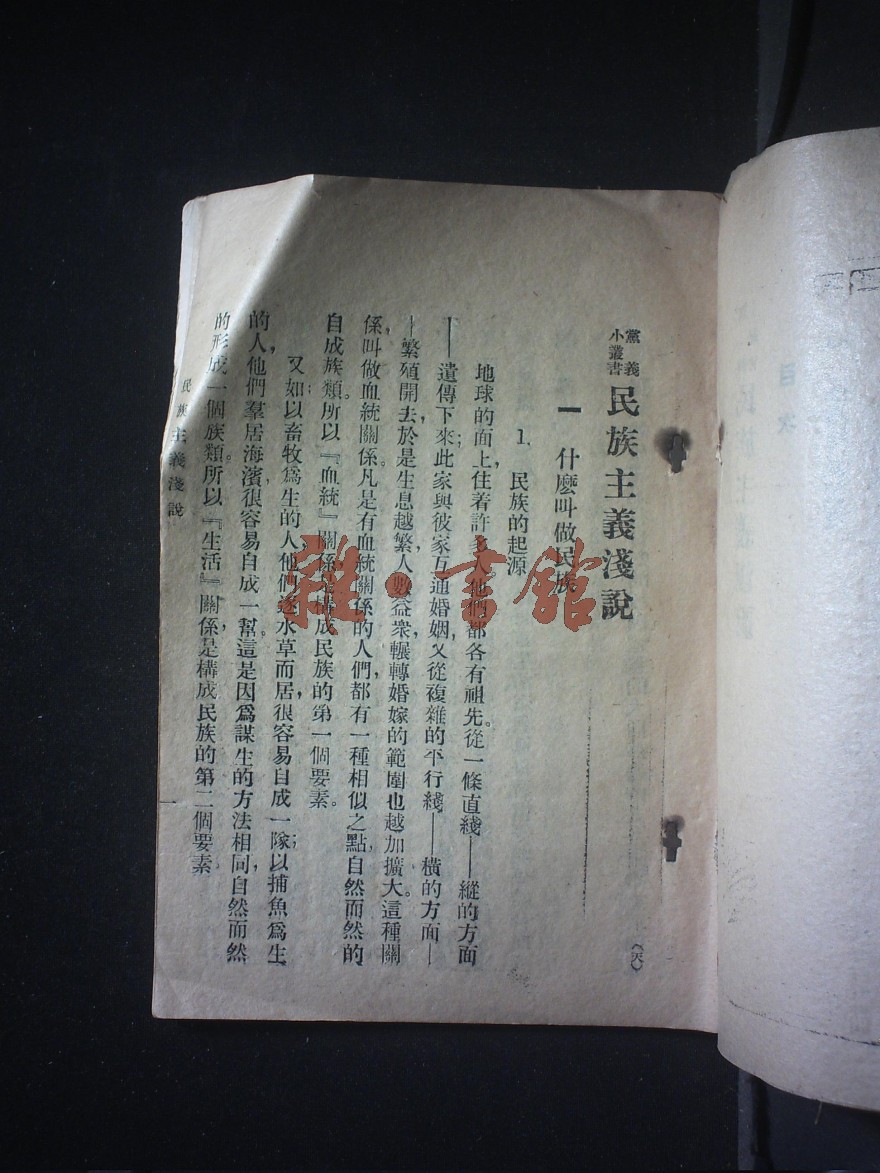 黨義小叢書 民族主義淺說
(天)
一 什麼叫做民族
1. 民族的起源
地球的面上，住着許多人，他們都各有祖先。從一條直綫——縱的方面
——遺傳下來；此家與彼家互通婚姻，又從複雜的平行綫——橫的方面—
—繁殖開去，於是生息越繁，人數益衆，輾轉婚嫁的範圍也越加擴大。這種關
係，叫做血統關係。凡是有血統關係的人們，都有一種相似之點，自然而然的
自成族類。所以『血統』關係，是構成民族的第一個要素。
又如以畜牧爲生的人，他們逐水草而居，很容易自成一隊；以捕魚爲生
的人，他們羣居海濱，很容易自成一幫。這是因爲謀生的方法相同，自然而然
的形成一個族類。所以『生活』關係，是構成民族的第二個要素。
民族主義淺說
一
雜·書館
目次